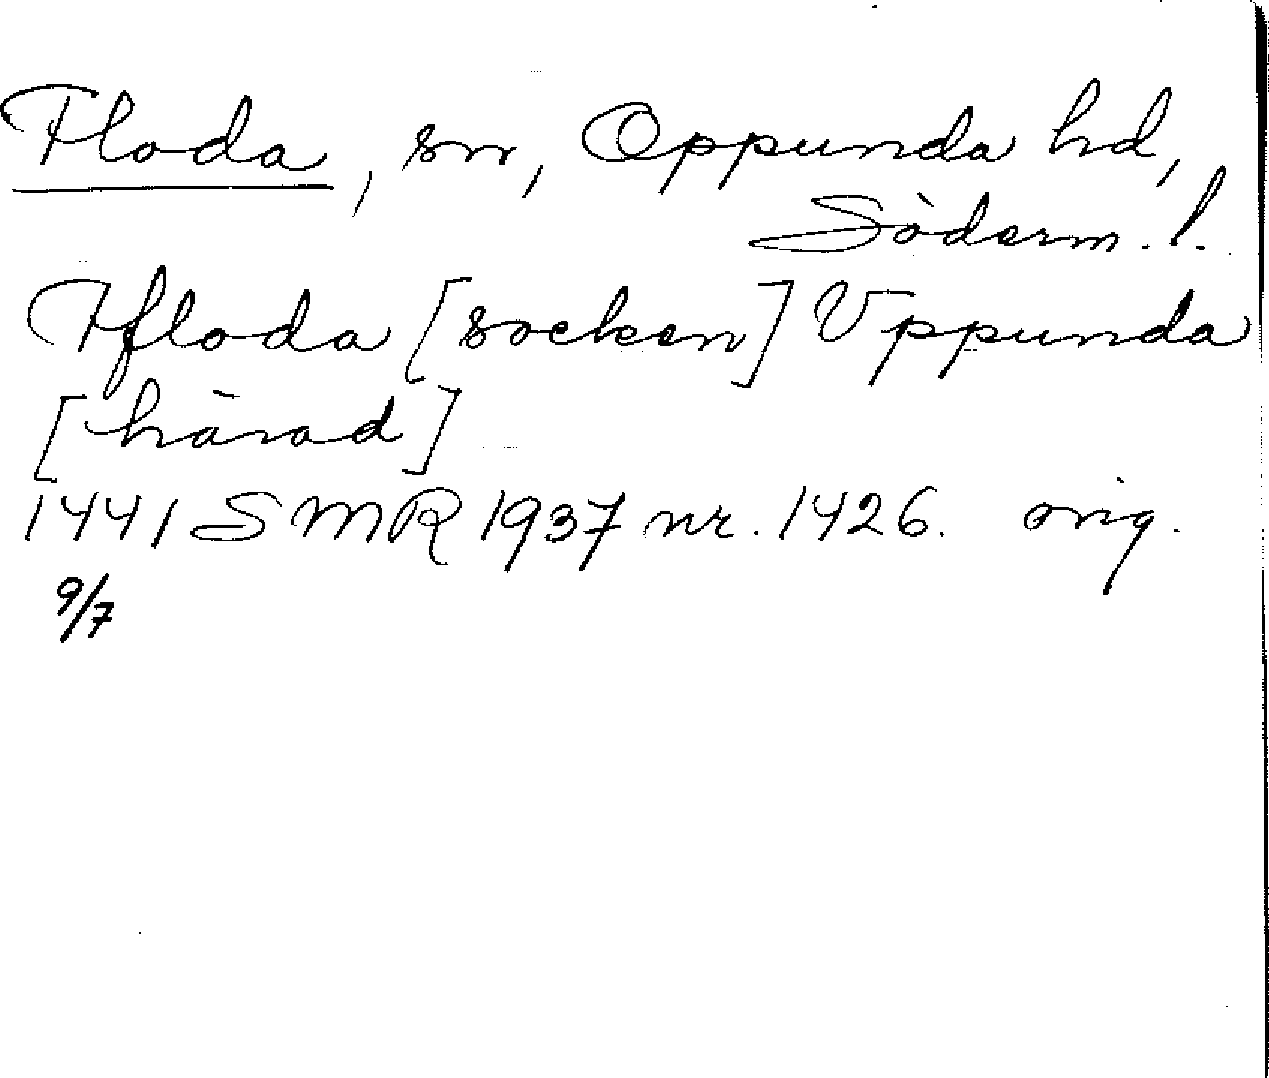 Floda, sn, Oppunda hd,
Söderm. l.
Ffloda [socken] Vppunda
[härad]
1441 SMR 1937 nr. 1426. orig.
9/7